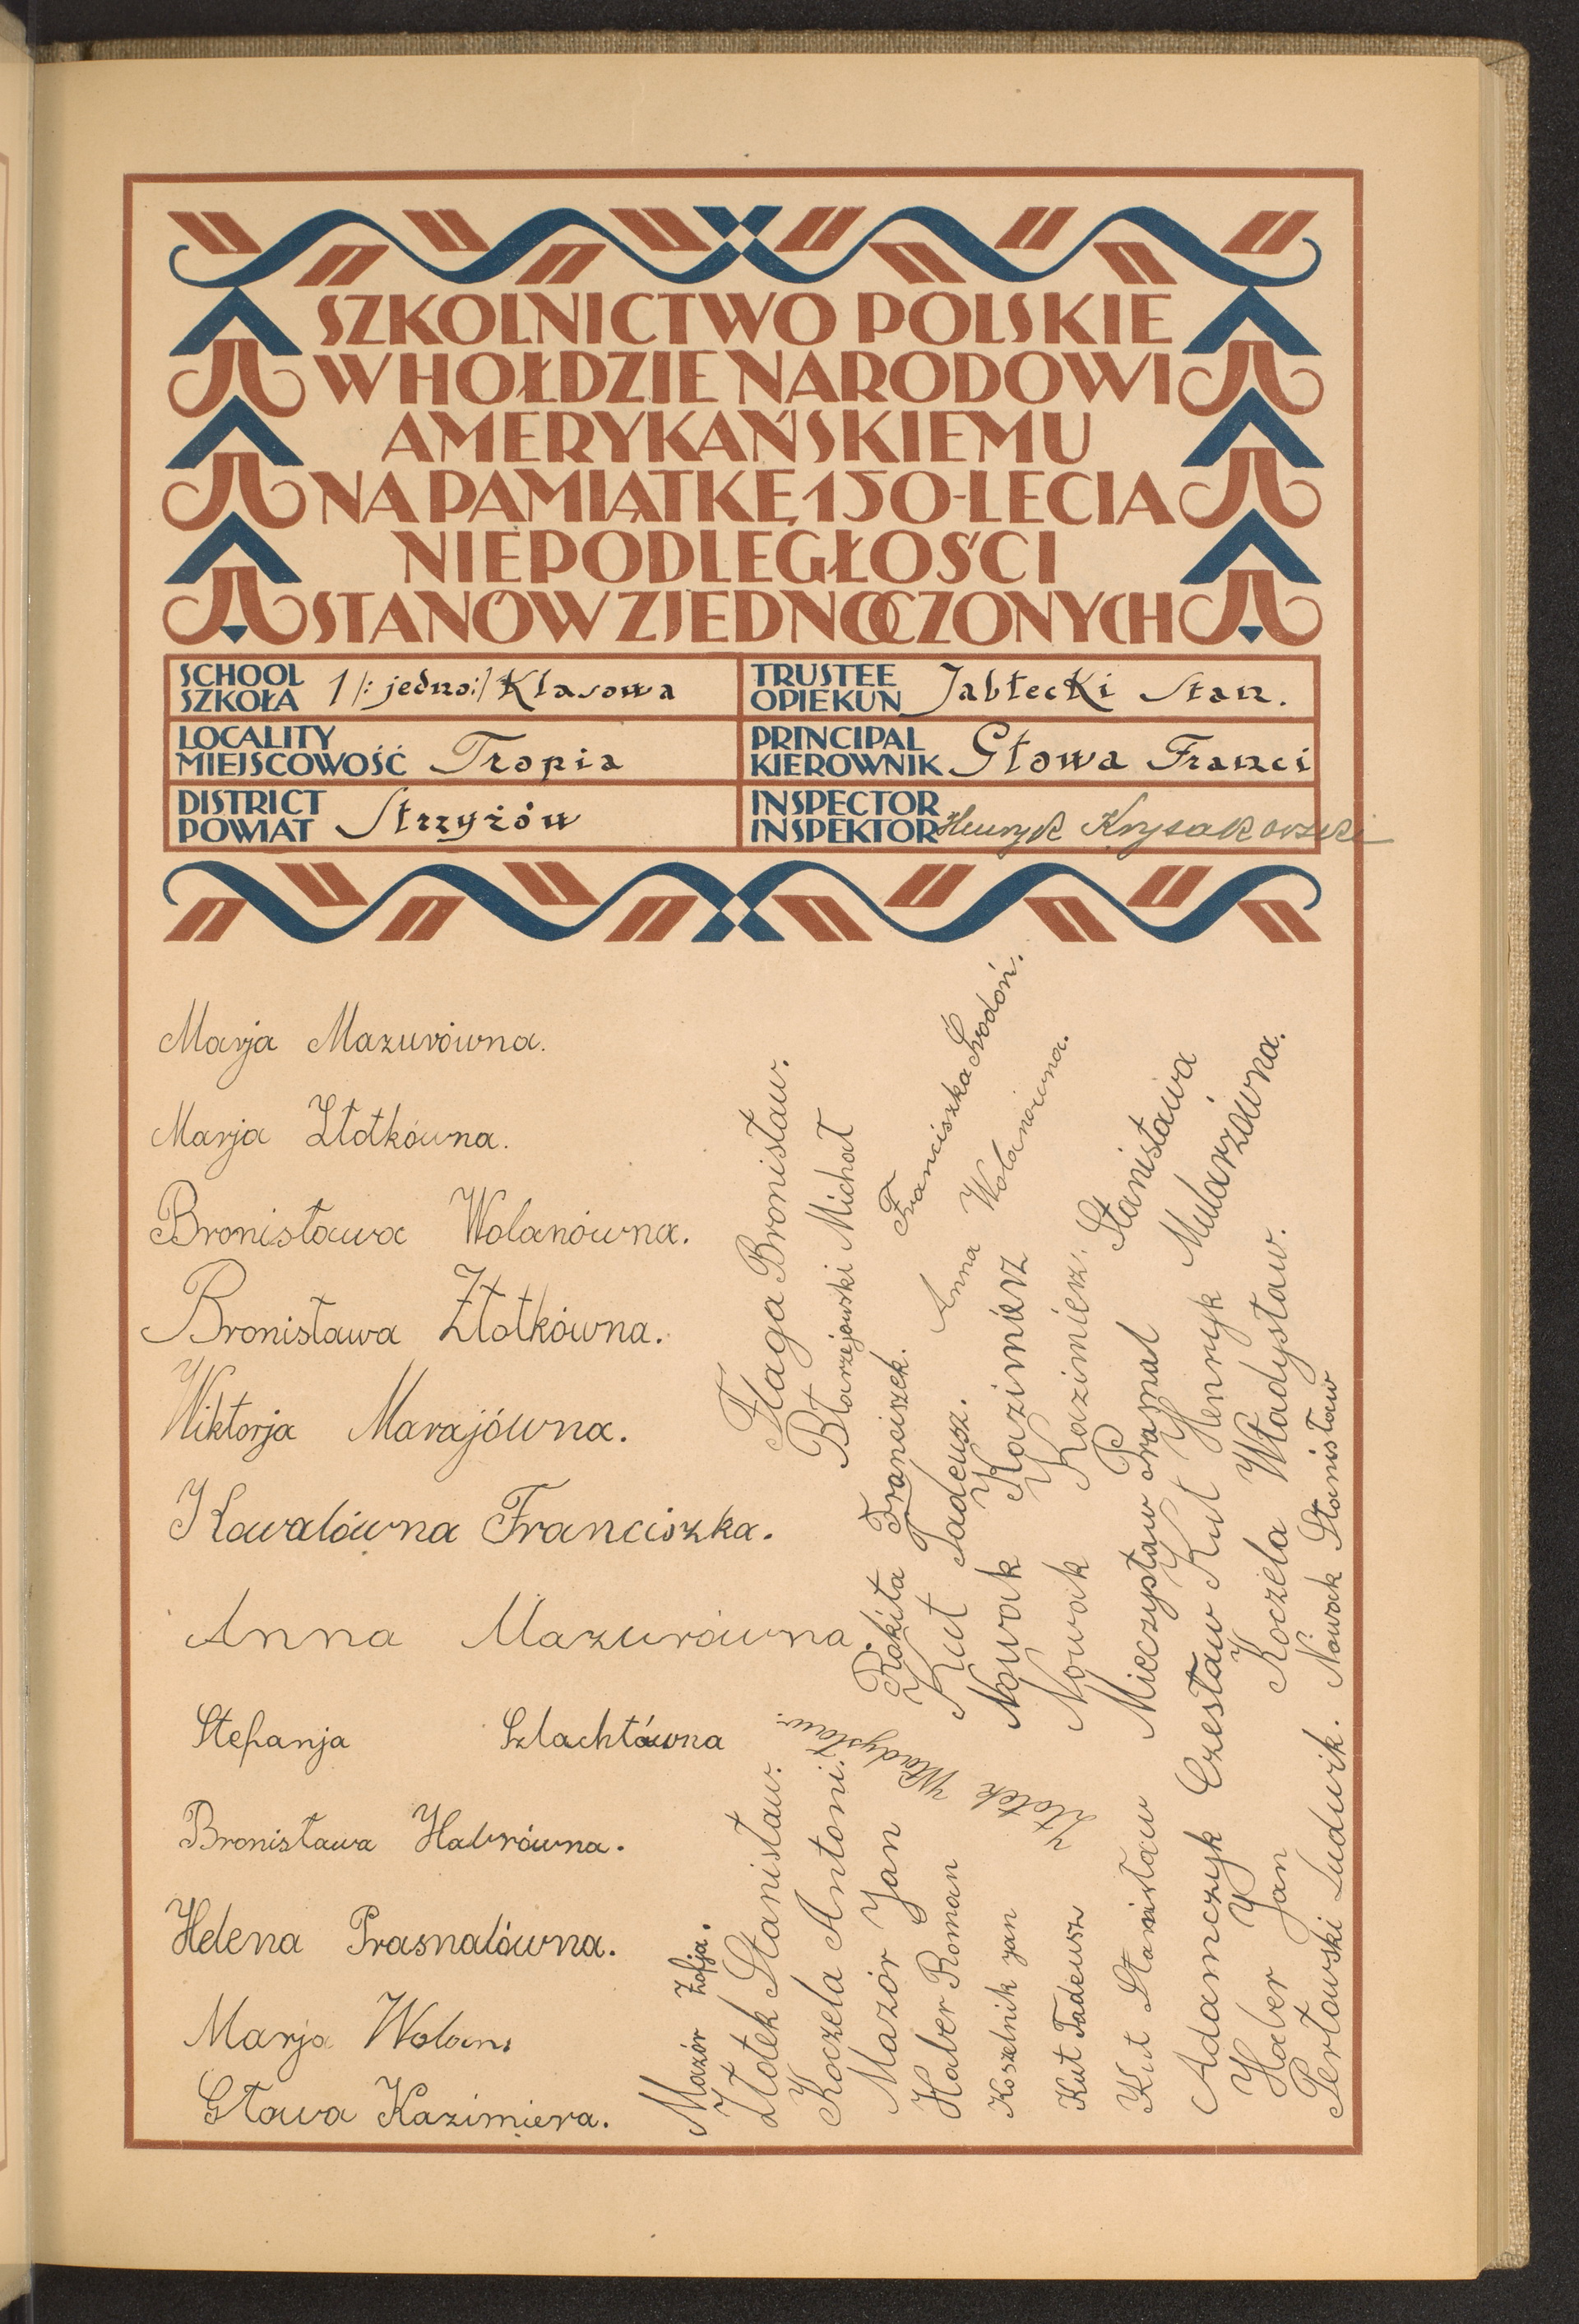 SZKOLNICTWO POLSKIE
W HOŁDZIE NARODOWI
AMERYKAŃSKIEMU
NA PAMIĄTKĘ 150-LECIA
NIEPODLEGŁOŚCI
STANÓW ZJEDNOCZONYCH
SCHOOL
SZKOŁA 1 /: jedno:/ Klasowa
TRUSTEE
OPIEKUN Jabłecki Stan.
LOCALITY
MIEJSCOWOŚĆ Tropia
PRINCIPAL
KIEROWNIK Głowa Franci
DISTRICT
POWIAT Strzyżów
INSPECTOR
INSPEKTOR Henryk Krysakowski
Marja Mazurówna.
Marja Złotkówna.
Bronisława Wolanówna.
Bronisława Złotkówna.
Wiktorja Marajówna.
Kowalówna Franciszka.
Anna Mazurówna.
Stefanja Szlachtówna
Bronisława Habrówna.
Helena Prasnalówna.
Marja Wolan
Głowa Kazimiera.
Mazór Zofja.
Złotek Stanisław.
Koczela Antoni.
Mazór Jan
Haber Roman
Koszelnik Jan
Kut Tadeusz
Kut Stanisław
Adamczyk Czesław
Haber Jan
Perłowski Ludwik.
Złotek Władysław.
Flaga Bronisław.
Błarzejowski Michał
Rokita Franciszek.
Kut Tadeusz.
Nowak Kazimierz
Nowak Kazimierz.
Mieczysław Prasnal
Kut Henryk
Koczela Władysław.
Nowak Stanisław
Franciszka Środoń.
Anna Wolanówna.
Stanisława
Mularzówna.